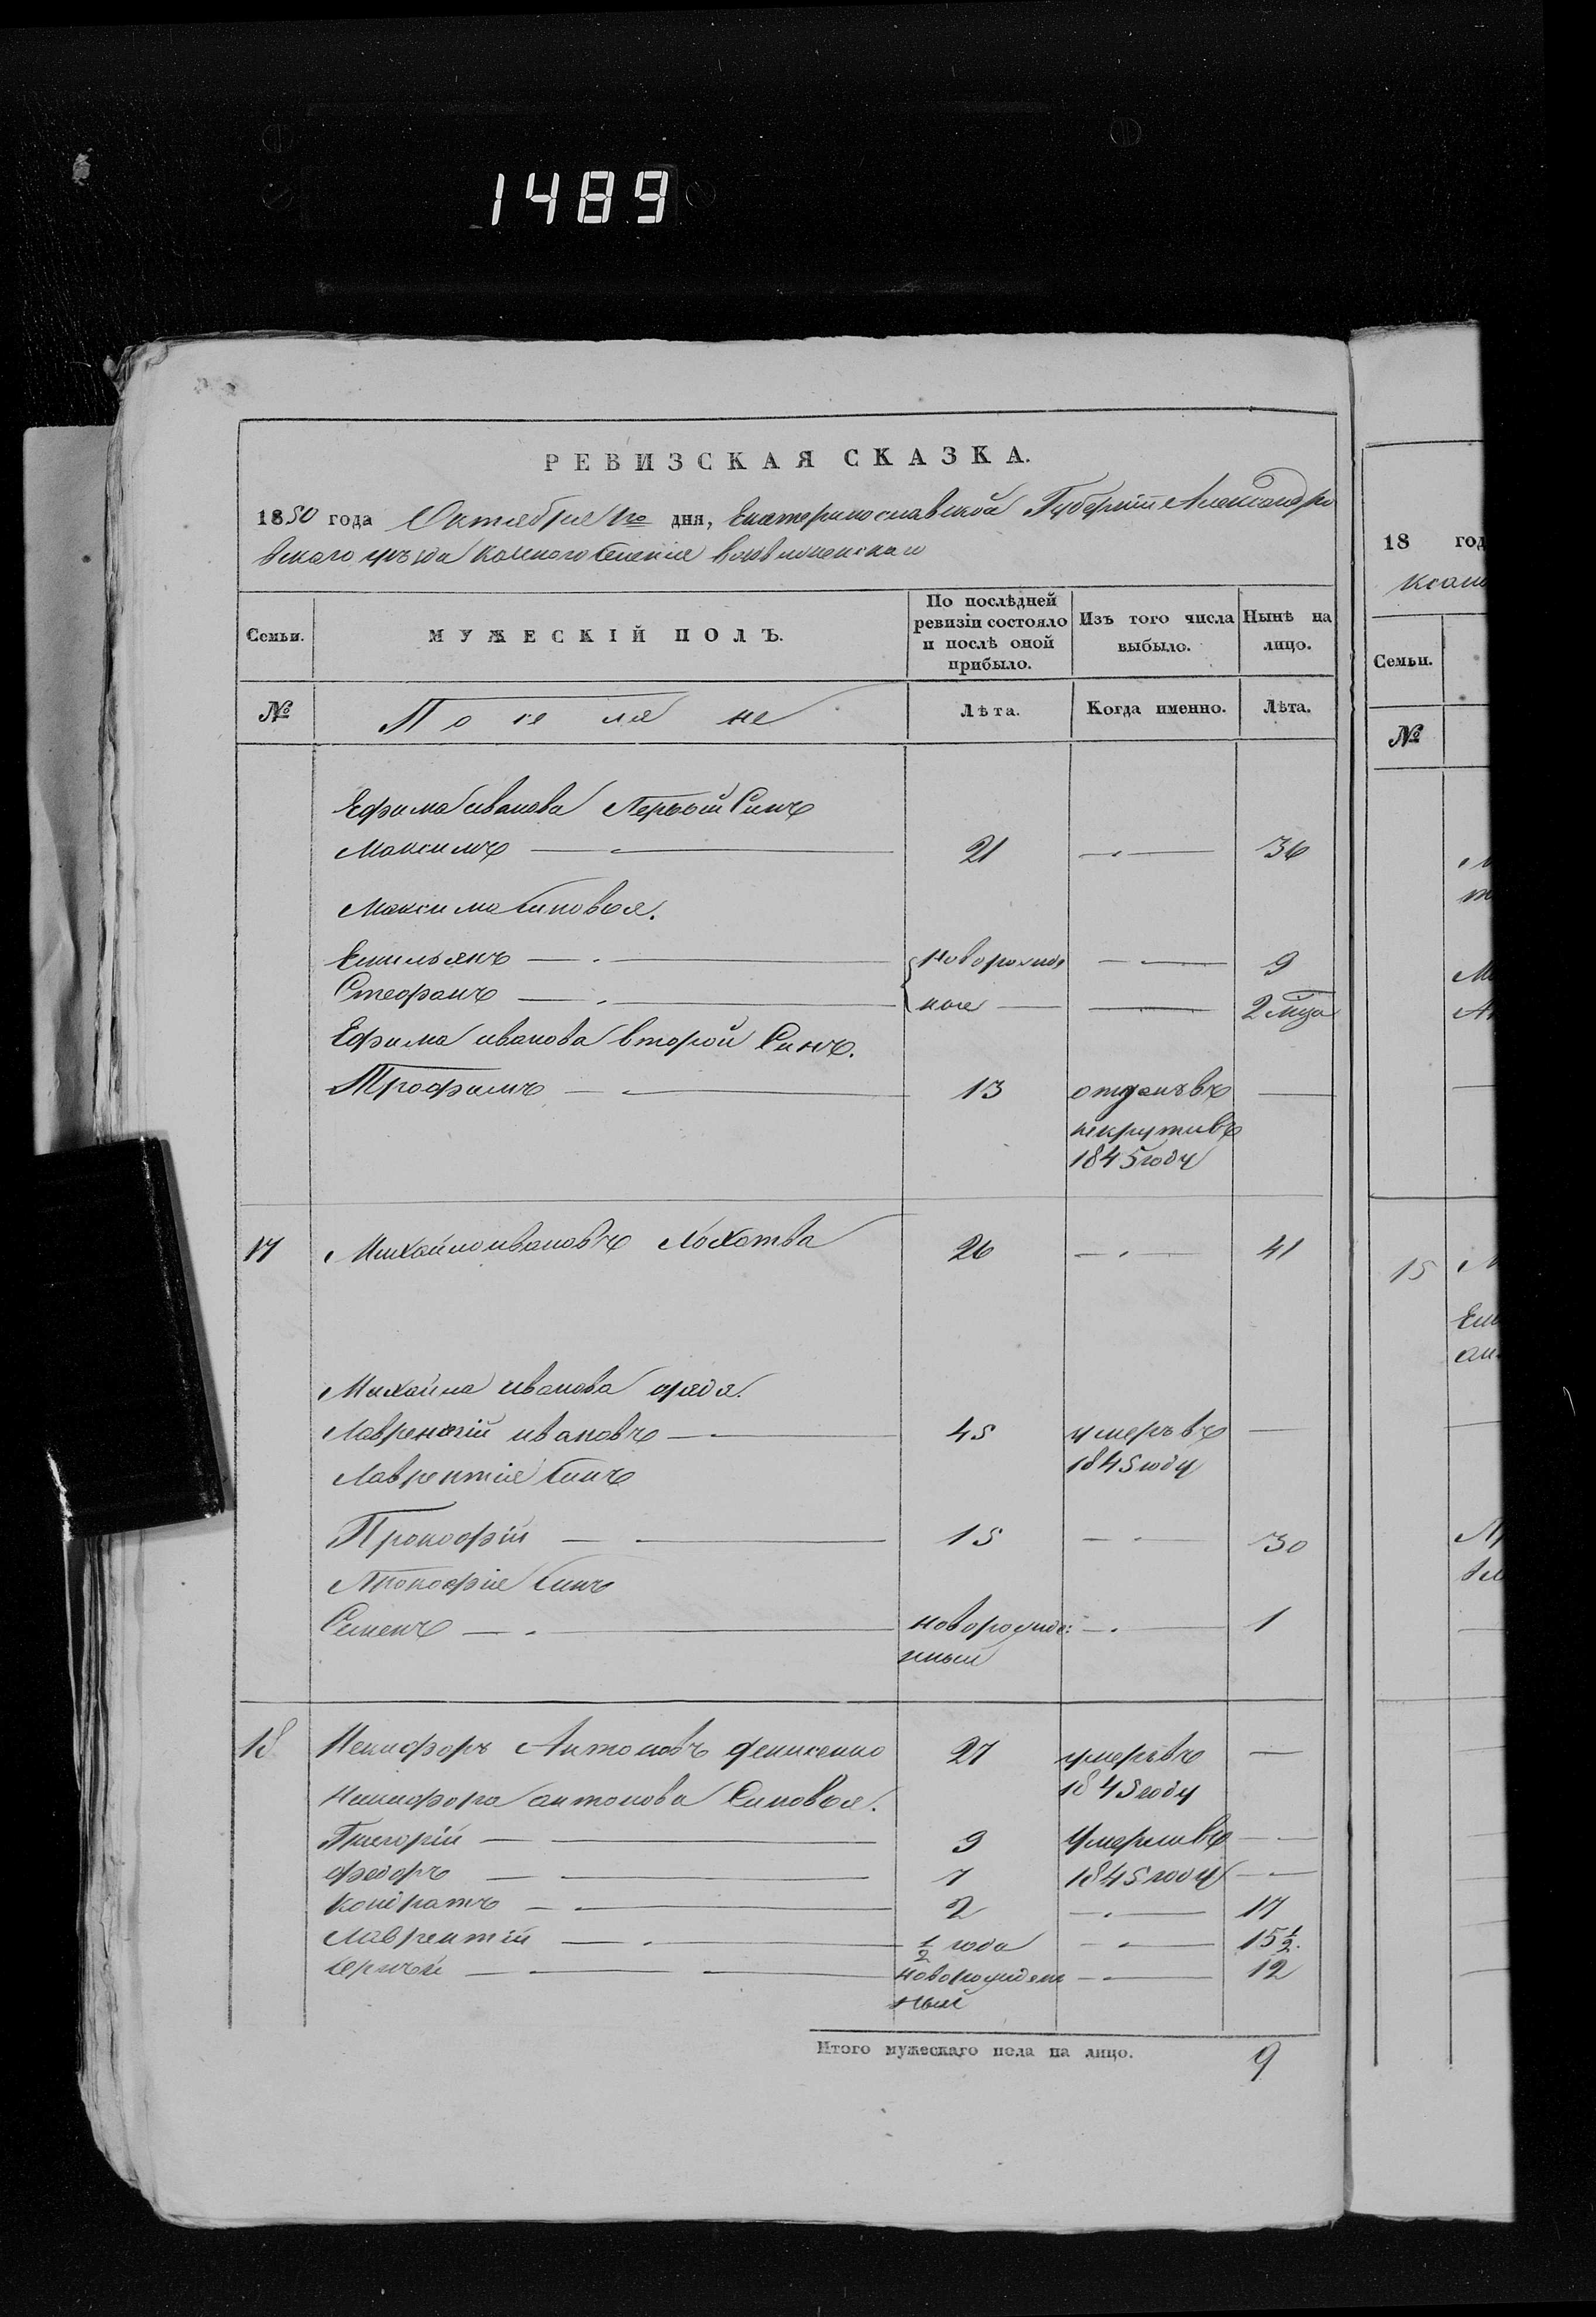 1489
РЕВИЗСКАЯ СКАЗКА.
1850 года Октября 1го дня, Екатеринославской Губерніи Александро
вскаго уѣзда казенного селенія
Семьи. МУЖЕСКІЙ ПОЛЪ. По послѣдней ревизіи состояло и послѣ оной прибыло. Изъ того числа выбыло. Нынѣ на лицо.
№ Поселяне Лѣта. Когда именно. Лѣта.
Ефима иванова Первый Синъ
Максимъ 21 36
Максима Синовья.
Емильянъ новорожде 9
Стефанъ ные 2 м̃ца
Ефима иванова второй Синъ.
Трофимъ 13 отданъ въ
некрути въ
1845 году
17 Михайло ивановъ Лохотва 26 41
Михайла иванова дядя.
Лаврентій ивановъ 45 умеръ въ
1845 году
Лаврентія Синъ
Прокофій 15 30
Прокофія Синъ
Семенъ новорожде: 1
нный
18 Никифоръ Антоновъ Денисенко 27 умеръ въ
1845 году
Никифора антонова Синовья.
Григорій 9 Умерли въ
Федоръ 7 1845 году
Кондратъ 2 17
Лаврентій ½ года 15½.
Сергѣй новорожден 12
ный
Итого мужескаго пола на лицо. 9
18 год
ксан
Семьи.
№
15